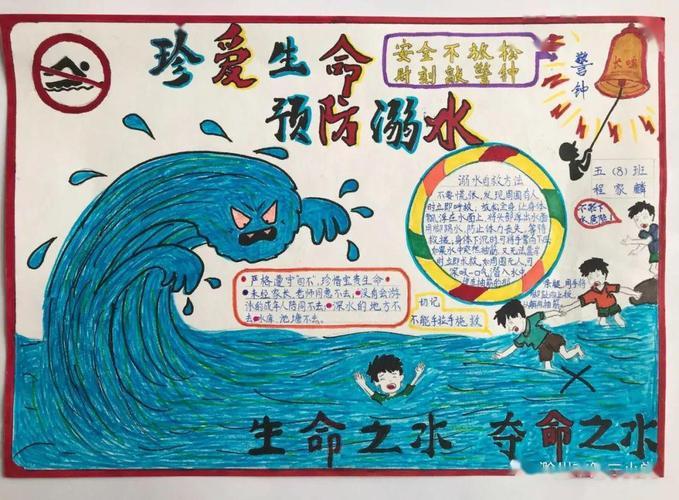 珍爱生命
预防溺水
安全不放松
时刻敲警钟
警钟
长鸣
五(8)班
程家麟
溺水自救方法
不要慌张,发现周围有人
时立即呼救,放松全身,让身体
飘浮在水面上,将头部浮出水面
用脚踢水,防止体力丧失,等待
救援,身体下沉时可将手掌向下压
如果水中突然抽筋,又无法靠岸
时立即求救,如周围无人,可
深吸一口气潜入水中
严格遵守"四不",珍惜宝贵生命
未经家长、老师同意不去,没有会游
泳的成年人陪同不去,深水的地方不
去,水库、池塘不去。
切记
不能手拉手施救
生命之水 夺命之水